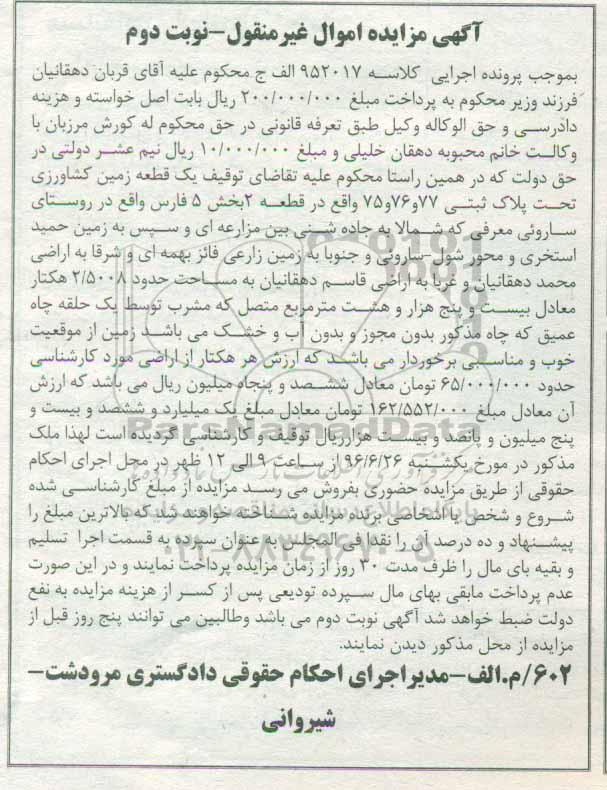 آگهی مزایده اموال غیرمنقول-نوبت دوم
بموجب پرونده اجرایی کلاسه ۹۵۲۰۱۷ الف ج محکوم علیه آقای قربان دهقانیان
فرزند وزیر محکوم به پرداخت مبلغ ۲۰۰/۰۰۰/۰۰۰ ریال بابت اصل خواسته و هزینه
دادرسی و حق الوکاله وکیل طبق تعرفه قانونی در حق محکوم له کورش مرزبان با
وکالت خانم محبوبه دهقان خلیلی و مبلغ ۱۰/۰۰۰/۰۰۰ ریال نیم عشر دولتی در
حق دولت که در همین راستا محکوم علیه تقاضای توقیف یک قطعه زمین کشاورزی
تحت پلاک ثبتی ۷۷و۷۶و۷۵ واقع در قطعه ۲بخش ۵ فارس واقع در روستای
ساروئی معرفی که شمالا به جاده شنی بین مزارعه ای و سپس به زمین حمید
استخری و محور شول-ساروئی و جنوبا به زمین زارعی فائز بهمه ای و شرقا به اراضی
محمد دهقانیان و غربا به اراضی قاسم دهقانیان به مساحت حدود ۲/۵۰۰۸ هکتار
معادل بیست و پنج هزار و هشت مترمربع متصل که مشرب توسط یک حلقه چاه
عمیق که چاه مذکور بدون مجوز و بدون آب و خشک می باشد زمین از موقعیت
خوب و مناسبی برخوردار می باشد که ارزش هر هکتار از اراضی مورد کارشناسی
حدود ۶۵/۰۰۰/۰۰۰ تومان معادل ششصد و پنجاه میلیون ریال می باشد که ارزش
آن معادل مبلغ ۱۶۲/۵۵۲/۰۰۰ تومان معادل مبلغ یک میلیارد و ششصد و بیست و
پنج میلیون و پانصد و بیست هزارریال توقیف و کارشناسی گردیده است لهذا ملک
مذکور در مورخ یکشنبه ۹۶/۶/۲۶ از ساعت ۹ الی ۱۲ ظهر در محل اجرای احکام
حقوقی از طریق مزایده حضوری بفروش می رسد مزایده از مبلغ کارشناسی شده
شروع و شخص یا اشخاصی برنده مزایده شناخته خواهند شد که بالاترین مبلغ را
پیشنهاد و ده درصد آن را نقدا فی المجلس به عنوان سپرده به قسمت اجرا تسلیم
و بقیه بای مال را ظرف مدت ۳۰ روز از زمان مزایده پرداخت نمایند و در این صورت
عدم پرداخت مابقی بهای مال سپرده تودیعی پس از کسر از هزینه مزایده به نفع
دولت ضبط خواهد شد آگهی نوبت دوم می باشد وطالبین می توانند پنج روز قبل از
مزایده از محل مذکور دیدن نمایند.
۶۰۲/م.الف-مدیراجرای احکام حقوقی دادگستری مرودشت-
شیروانی
ParsNamadData